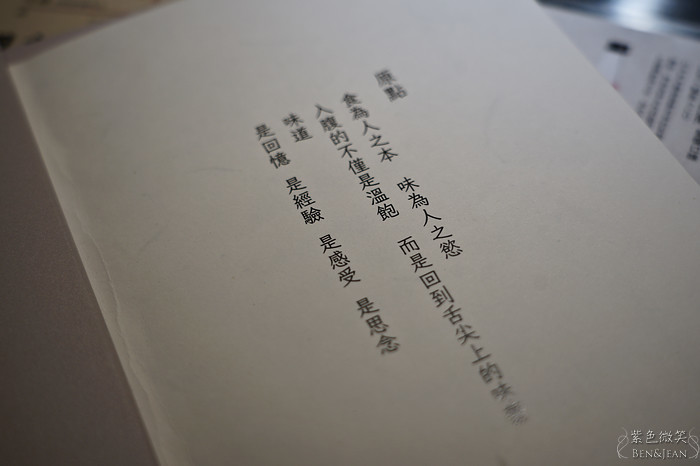 原點
食為人之本　味為人之慾
入腹的不僅是溫飽　而是回到舌尖上的味
味道
是回憶　是經驗　是感受　是思念
紫色微笑
BEN&JEAN